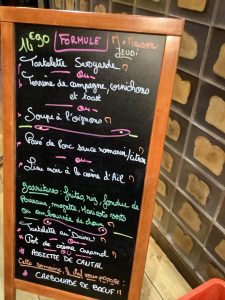 11€90 FORMULE M. Maison
Jeudi
* Tartelette Savoyarde
ou
* Terrine de campagne, cornichons
et toast
ou
* Soupe à l'oignons
* Pavé de Porc sauce romarin/citron
ou
* Lieu noir à la crème d'Ail
Garnitures: frites, riz, fondue de
Poireaux, mogette, Haricots verts
ou
* Tartelette au Daim
* Pot de crème caramel
* ASSIETTE DE CANTAL
Cette semaine, le chef vous propose:
CARBONADE DE BOEUF